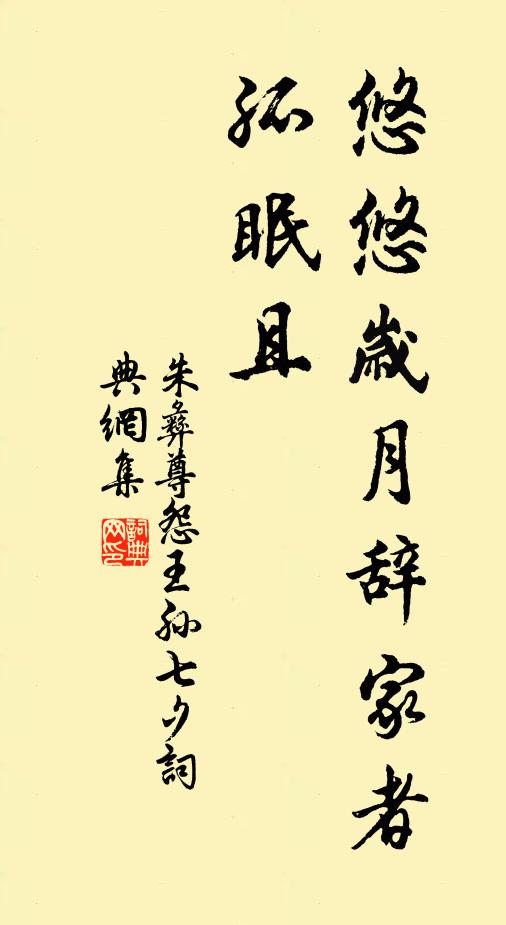 悠悠歲月辞家者
孤眠且
朱彝尊怨王孙七夕詞
典網集
詞典
网印